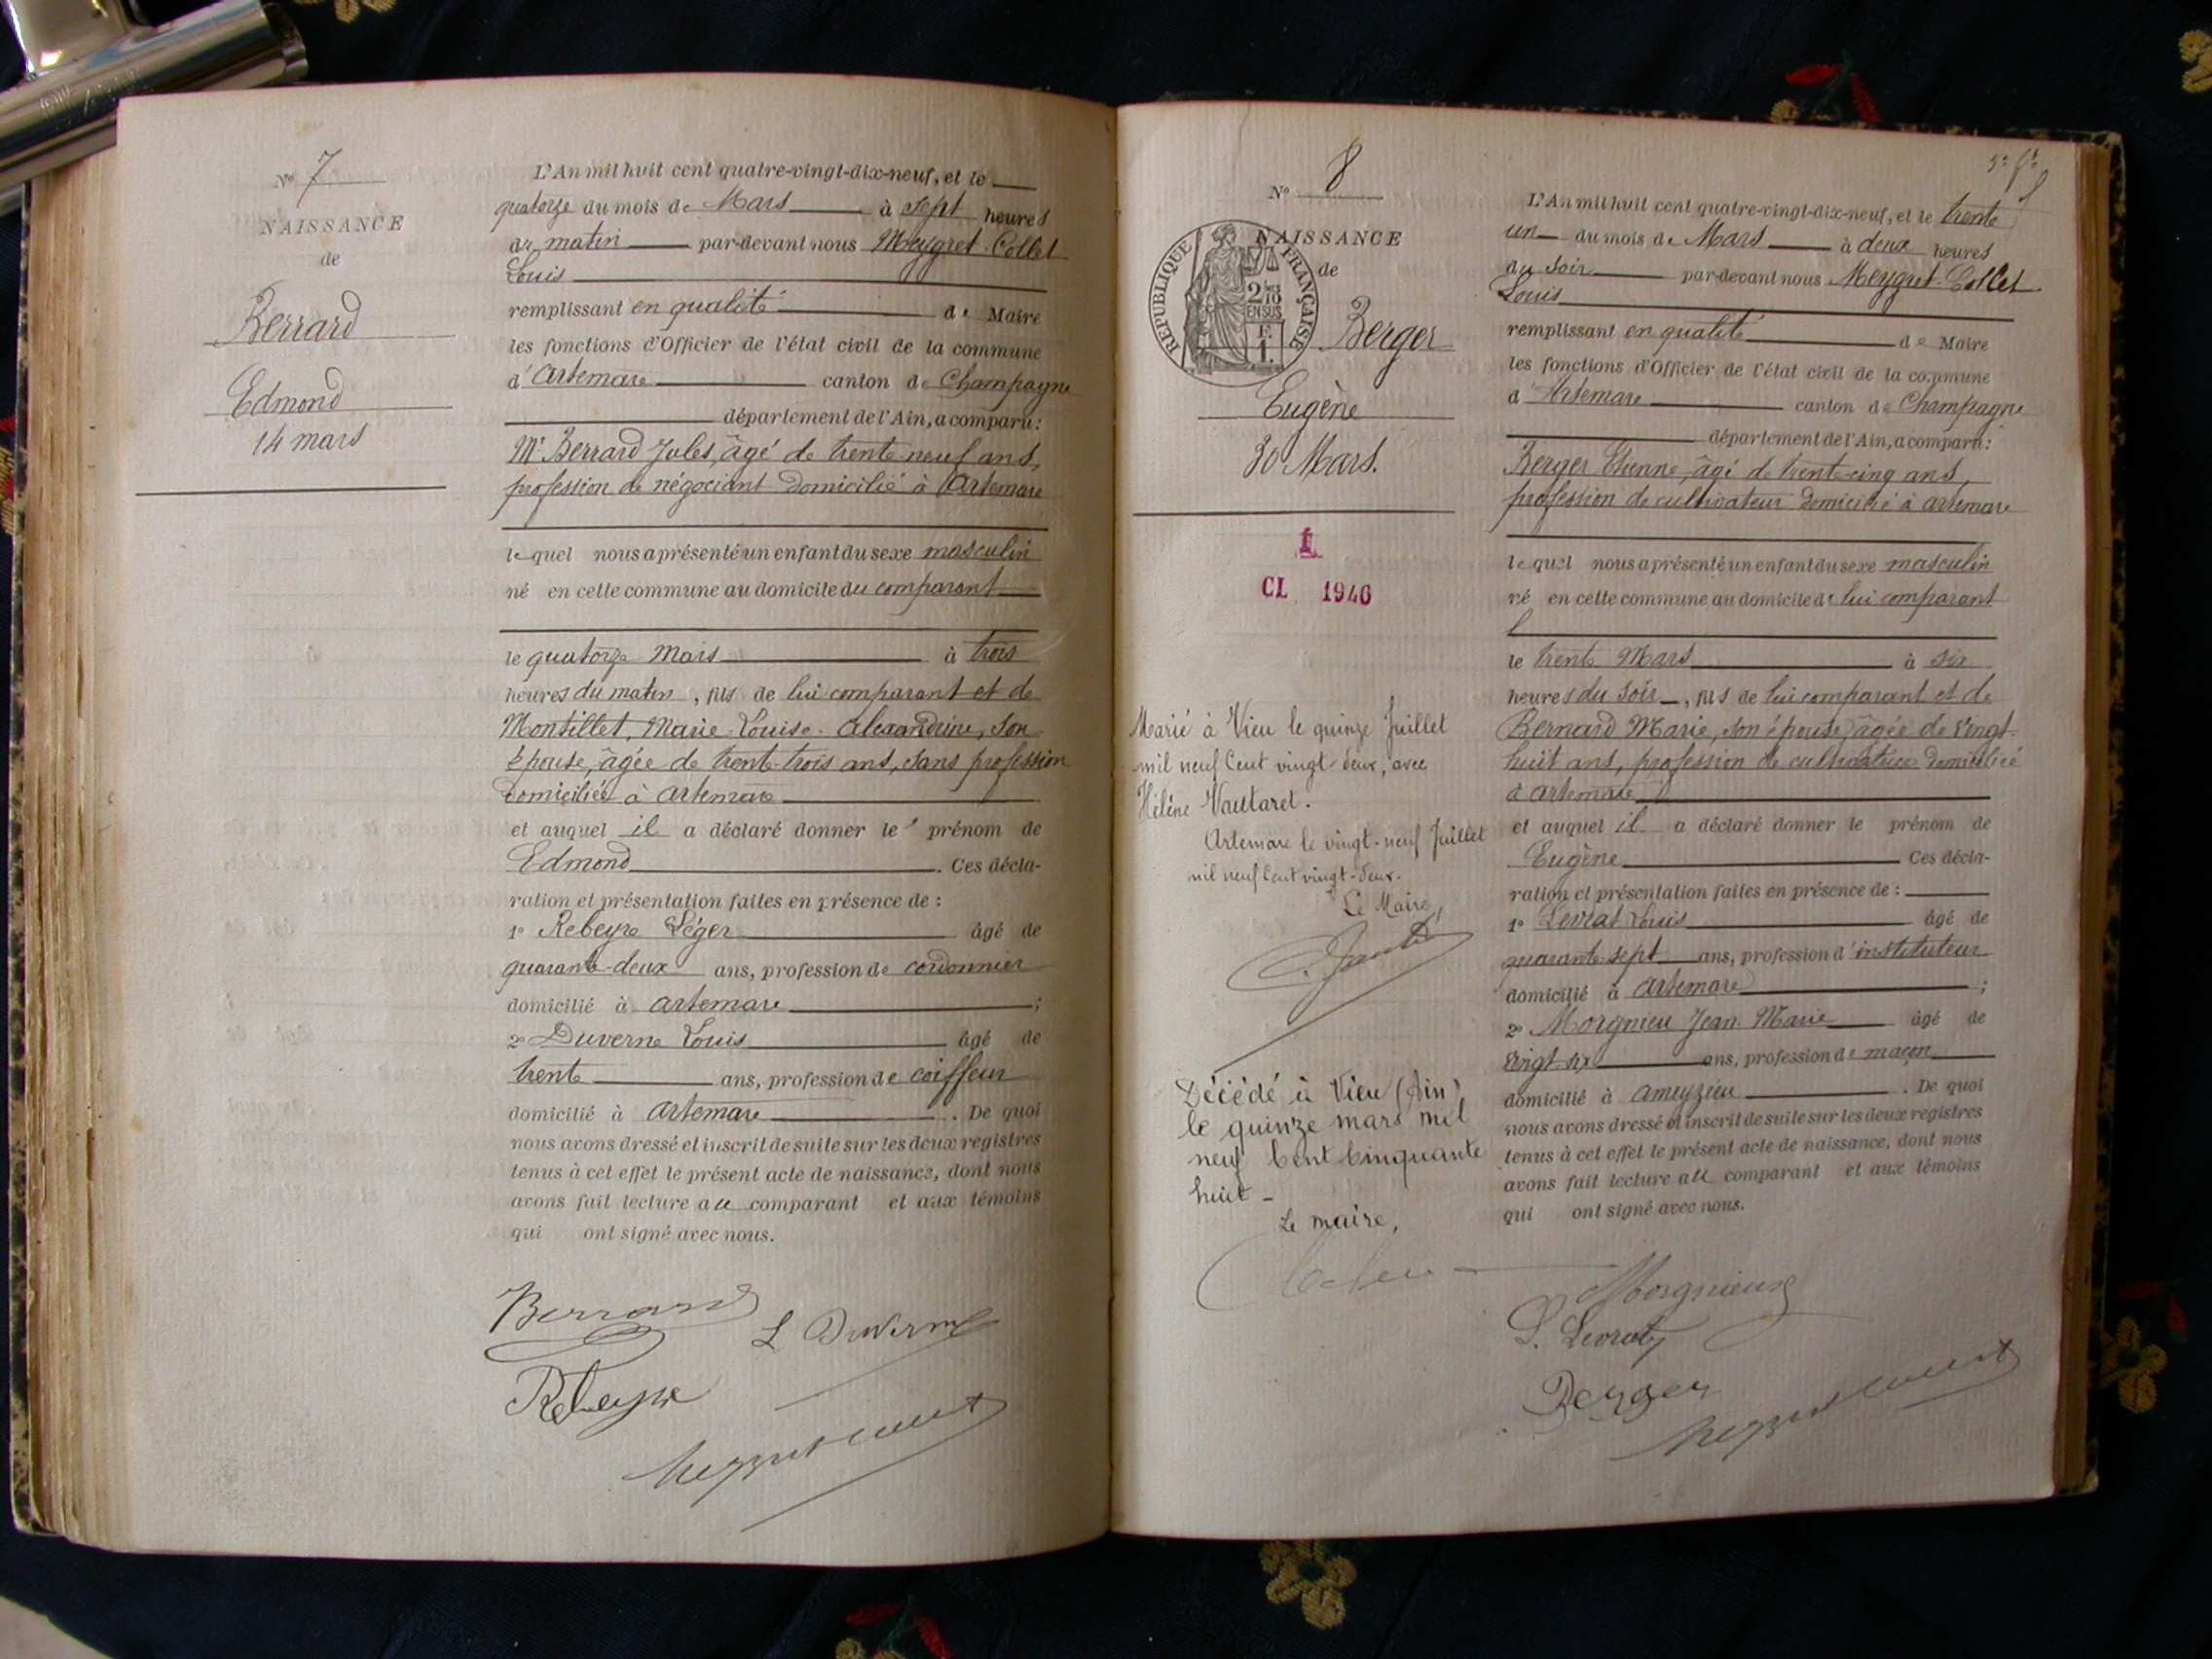 N° 7
NAISSANCE
de
Berrard
Edmond
14 mars
L'An mil huit cent quatre-vingt-dix-neuf, et le
quatorze du mois de Mars à sept heures
du matin par-devant nous Meygret-Collet
Louis
remplissant en qualité de Maire
les fonctions d'Officier de l'état civil de la commune
d'Artemare canton de Champagne
département de l'Ain, a comparu:
Mr Berrard Jules, âgé de trente-neuf ans,
profession de négociant domicilié à Artemare
lequel nous a présenté un enfant du sexe masculin
né en cette commune au domicile du comparant
le quatorze Mars à trois
heures du matin, fils de lui comparant et de
Montillet, Marie-Louise-Alexandrine, son
épouse, âgée de trente-trois ans, sans profession
domiciliée à Artemare
et auquel il a déclaré donner le prénom de
Edmond. Ces décla-
ration et présentation faites en présence de :
1° Rebeyre Léger âgé de
quarante-deux ans, profession de cordonnier
domicilié à Artemare ;
2° Duverne Louis âgé de
trente ans, profession de coiffeur
domicilié à Artemare. De quoi
nous avons dressé et inscrit de suite sur les deux registres
tenus à cet effet le présent acte de naissance, dont nous
avons fait lecture au comparant et aux témoins
qui ont signé avec nous.
Berrard
L Duverne
Rebeyre
N° 8
REPUBLIQUE FRANÇAISE
2/10
EN SUS
F.
1.
NAISSANCE
de
Berger
Eugène
30 Mars.
1
CL 1946
Marié à Vieu le quinze Juillet
mil neuf Cent vingt-deux, avec
Hélène Vauttaret.
Artemare le vingt-neuf Juillet
mil neuf Cent vingt-deux.
Le Maire,
Décédé à Vieu (Ain)
le quinze mars mil
neuf Cent Cinquante
huit -
Le maire,
L'An mil huit cent quatre-vingt-dix-neuf, et le trente
un du mois de Mars à deux heures
du soir par-devant nous Meygret-Collet
Louis
remplissant en qualité de Maire
les fonctions d'Officier de l'état civil de la commune
d'Artemare canton de Champagne
département de l'Ain, a comparu:
Berger Etienne, âgé de trente-cinq ans,
profession de cultivateur domicilié à Artemare
lequel nous a présenté un enfant du sexe masculin
né en cette commune au domicile de lui comparant
le trente Mars à six
heures du soir, fils de lui comparant et de
Bernard Marie, son épouse, âgée de vingt-
huit ans, profession de cultivatrice domiciliée
à Artemare
et auquel il a déclaré donner le prénom de
Eugène Ces décla-
ration et présentation faites en présence de :
1° Levrat Louis âgé de
quarante-sept ans, profession d'instituteur
domicilié à Artemare ;
2° Morgnieu Jean-Marie âgé de
vingt-six ans, profession de maçon
domicilié à Ameyzieu. De quoi
nous avons dressé et inscrit de suite sur les deux registres
tenus à cet effet le présent acte de naissance, dont nous
avons fait lecture au comparant et aux témoins
qui ont signé avec nous.
Morgnieux
L. Levrat
Berger